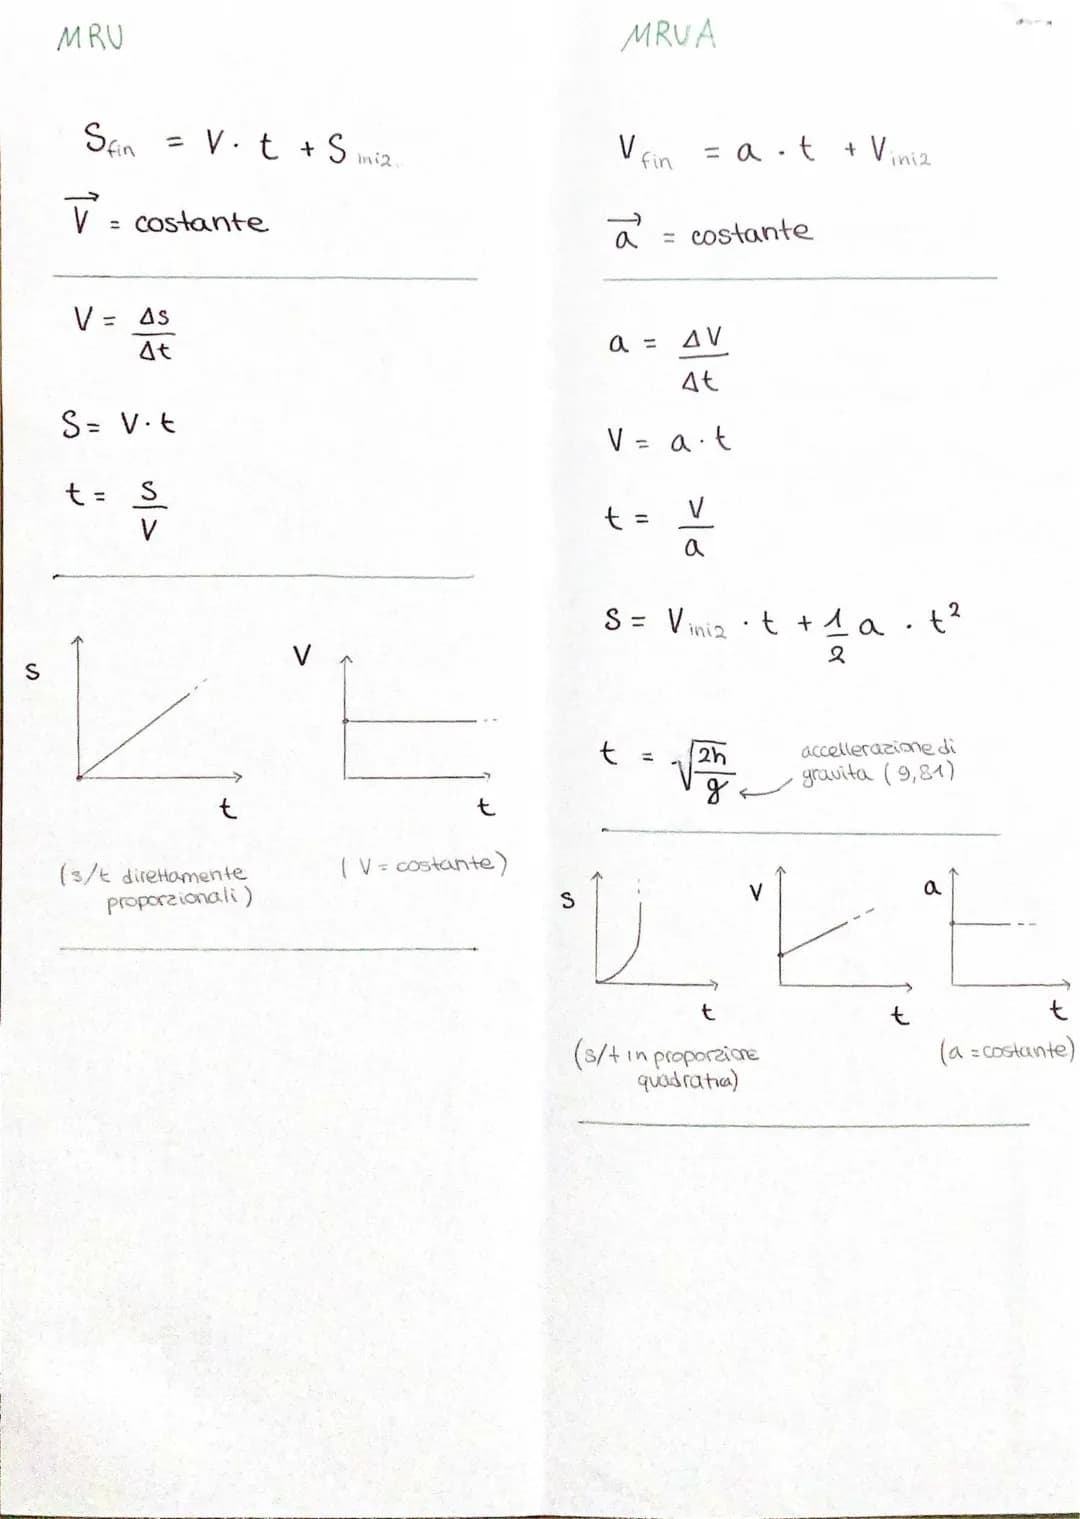 MRU
S fin = V · t + S iniz.
V = costante
V = Δs/Δt
S = V · t
t = S/V
S
t
(s/t direttamente
proporzionali)
V
t
(V = costante)
MRUA
V fin = a · t + V iniz
a = costante
a = ΔV/Δt
V = a · t
t = V/a
S = V iniz · t + 1/2 a · t²
t = √2h/g
accellerazione di
gravita (9,81)
S
t
(s/t in proporzione
quadratica)
V
t
a
t
(a = costante)